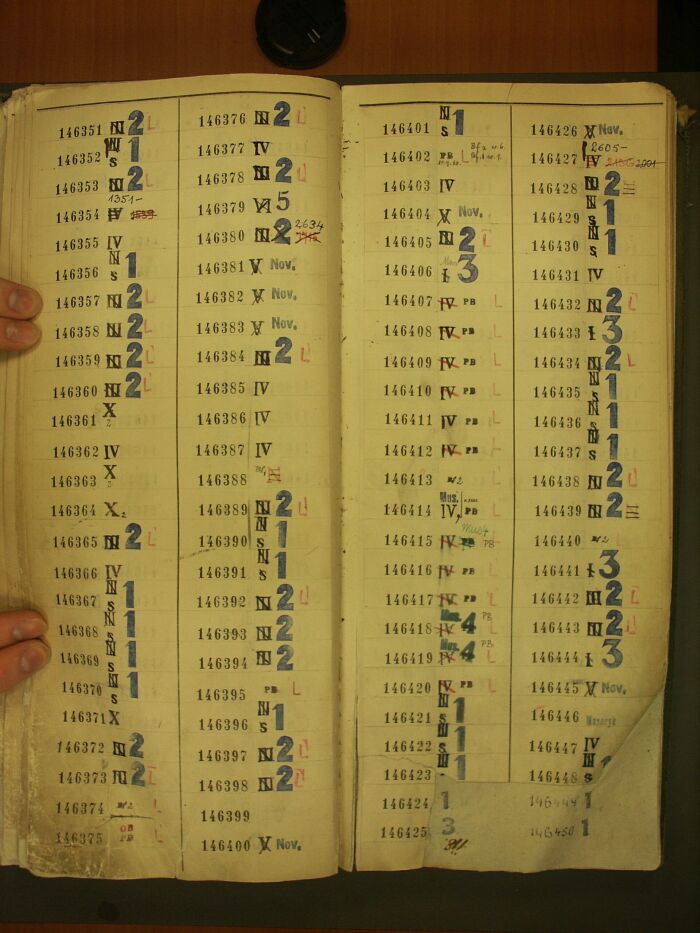 146351 2 L
146352 S 1
146353 2 L
1351-
146354 IV
146355 IV
146356 N S 1
146357 2 L
146358 2 L
146359 2 L
146360 2 L
146361 X 2
146362 IV
146363 X 2
146364 X 2
146365 2 L
146366 IV
146367 N S 1
146368 N S 1
146369 N S 1
146370 N S 1
146371 X
146372 2
146373 2
146374 L
146375 OB PB L
146376 2 L
146377 IV
146378 2 L
146379 VI 5
146380 2 2634
146381 V Nov.
146382 V Nov.
146383 V Nov.
146384 2 L
146385 IV
146386 IV
146387 IV
146388
146389 2 L
146390 N S 1
146391 N S 1
146392 2 L
146393 2
146394 2
146395 PB L
146396 N S 1
146397 2 L
146398 2
146399
146400 V Nov.
146401 N S 1
146402 PB L
146403 IV
146404 V Nov.
146405 2 L
146406 I 3
146407 IV PB L
146408 IV PB L
146409 IV PB L
146410 IV PB L
146411 IV PB L
146412 IV PB L
146413
146414 Mus. IV PB L
146415 IV PB PB
146416 IV PB L
146417 IV PB L
146418 Mus. IV 4 PB L
146419 Mus. IV 4 PB L
146420 IV PB L
146421 N S 1
146422 N S 1
146423 1
146424 1
146425 3
146426 V Nov.
2605-
146427 IV 2001
146428 2
146429 N S 1
146430 N S 1
146431 IV
146432 2 L
146433 I 3
146434 2 L
146435 N S 1
146436 N S 1
146437 N S 1
146438 2 L
146439 2
146440 L
146441 I 3
146442 2 L
146443 2 L
146444 I 3
146445 V Nov.
146446 Masaryk
146447 IV
146448 S 1
146449 1
146450 1